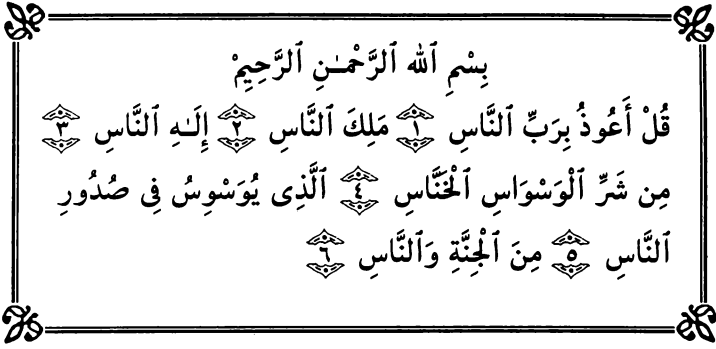 بِسْمِ ٱللَّهِ ٱلرَّحْمَـٰنِ ٱلرَّحِيمْ
قُلْ أَعُوذُ بِرَبِّ ٱلنَّاسِ ١ مَلِكَ ٱلنَّاسِ ٢ إِلَـٰهِ ٱلنَّاسِ ٣
مِن شَرِّ ٱلْوَسْوَاسِ ٱلْخَنَّاسِ ٤ ٱلَّذِى يُوَسْوِسُ فِى صُدُورِ
ٱلنَّاسِ ٥ مِنَ ٱلْجِنَّةِ وَٱلنَّاسِ ٦